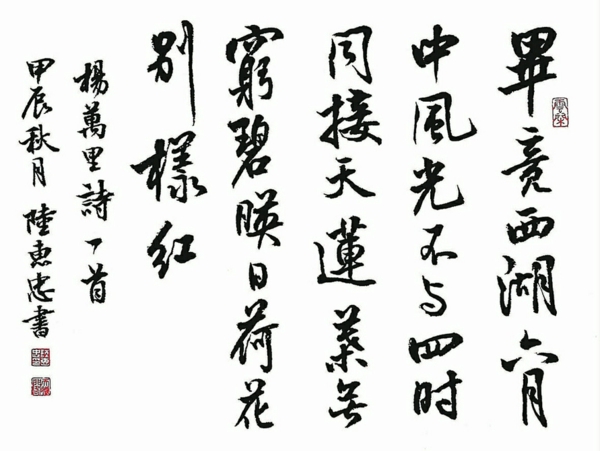 畢竟西湖六月
中風光不与四时
同接天蓮葉無
窮碧暎日荷花
别樣紅
楊萬里詩一首
甲辰秋月 陸惠忠書